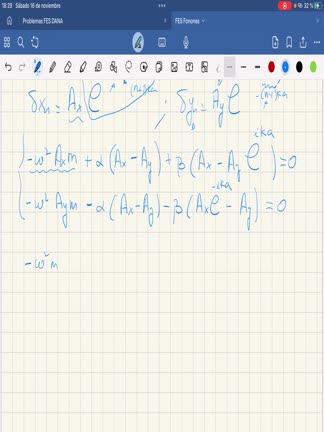 18:29 Sábado 16 de noviembre 32 %
Problemas FES DANA FES Fonones
δxₙ = Aₓ e , δyₙ = A_y e
-ω² Aₓ m + α (Aₓ - A_y) + β (Aₓ - A_y e^{ika}) = 0
-ω² A_y m - α (Aₓ - A_y) - β (Aₓ e^{-ika} - A_y) = 0
-ω² m